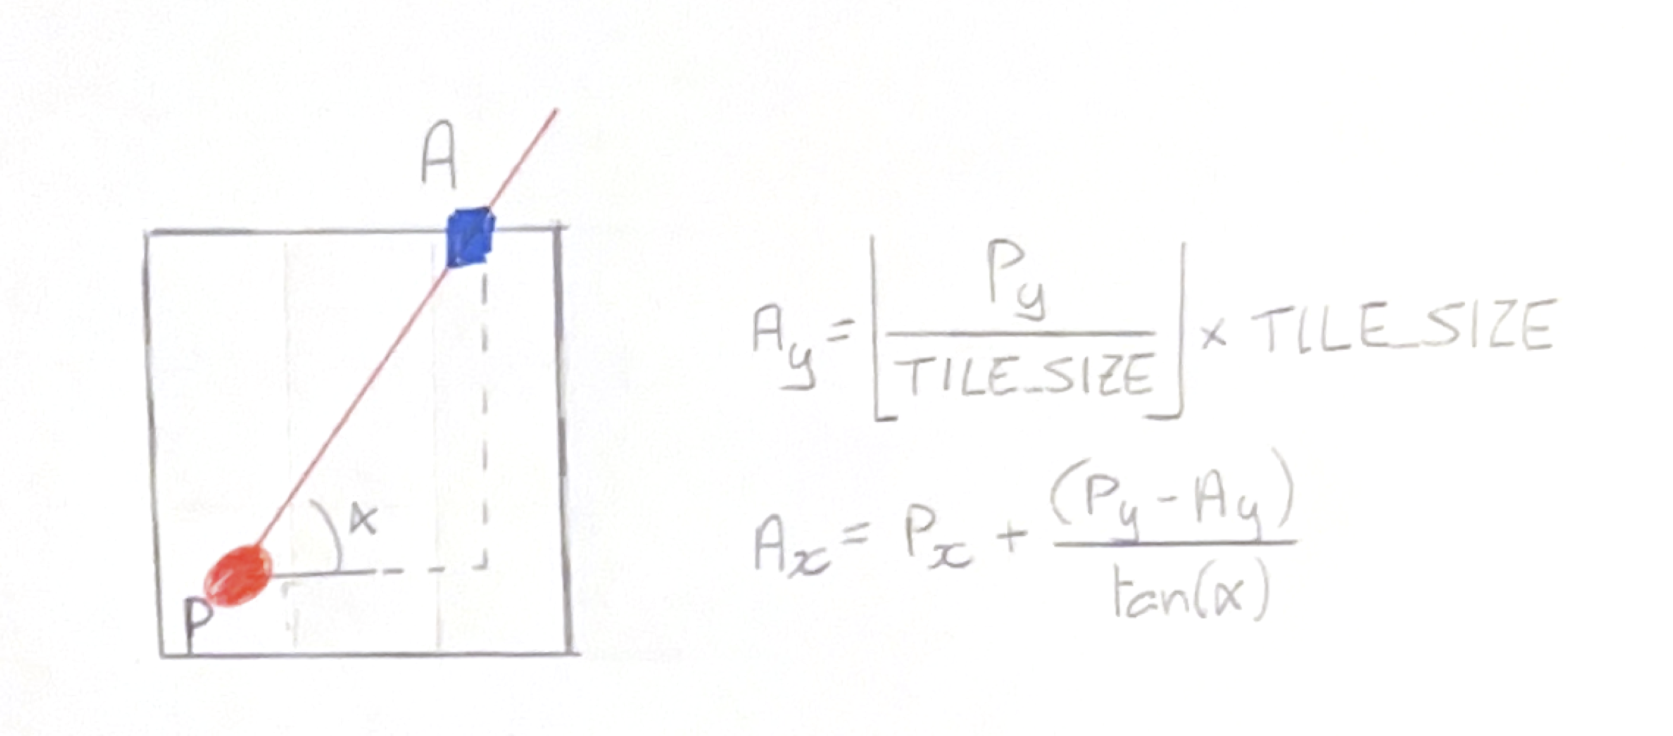 A
α
P
A_y = ⌊ P_y / TILE_SIZE ⌋ × TILE_SIZE
A_x = P_x + (P_y - A_y) / tan(α)